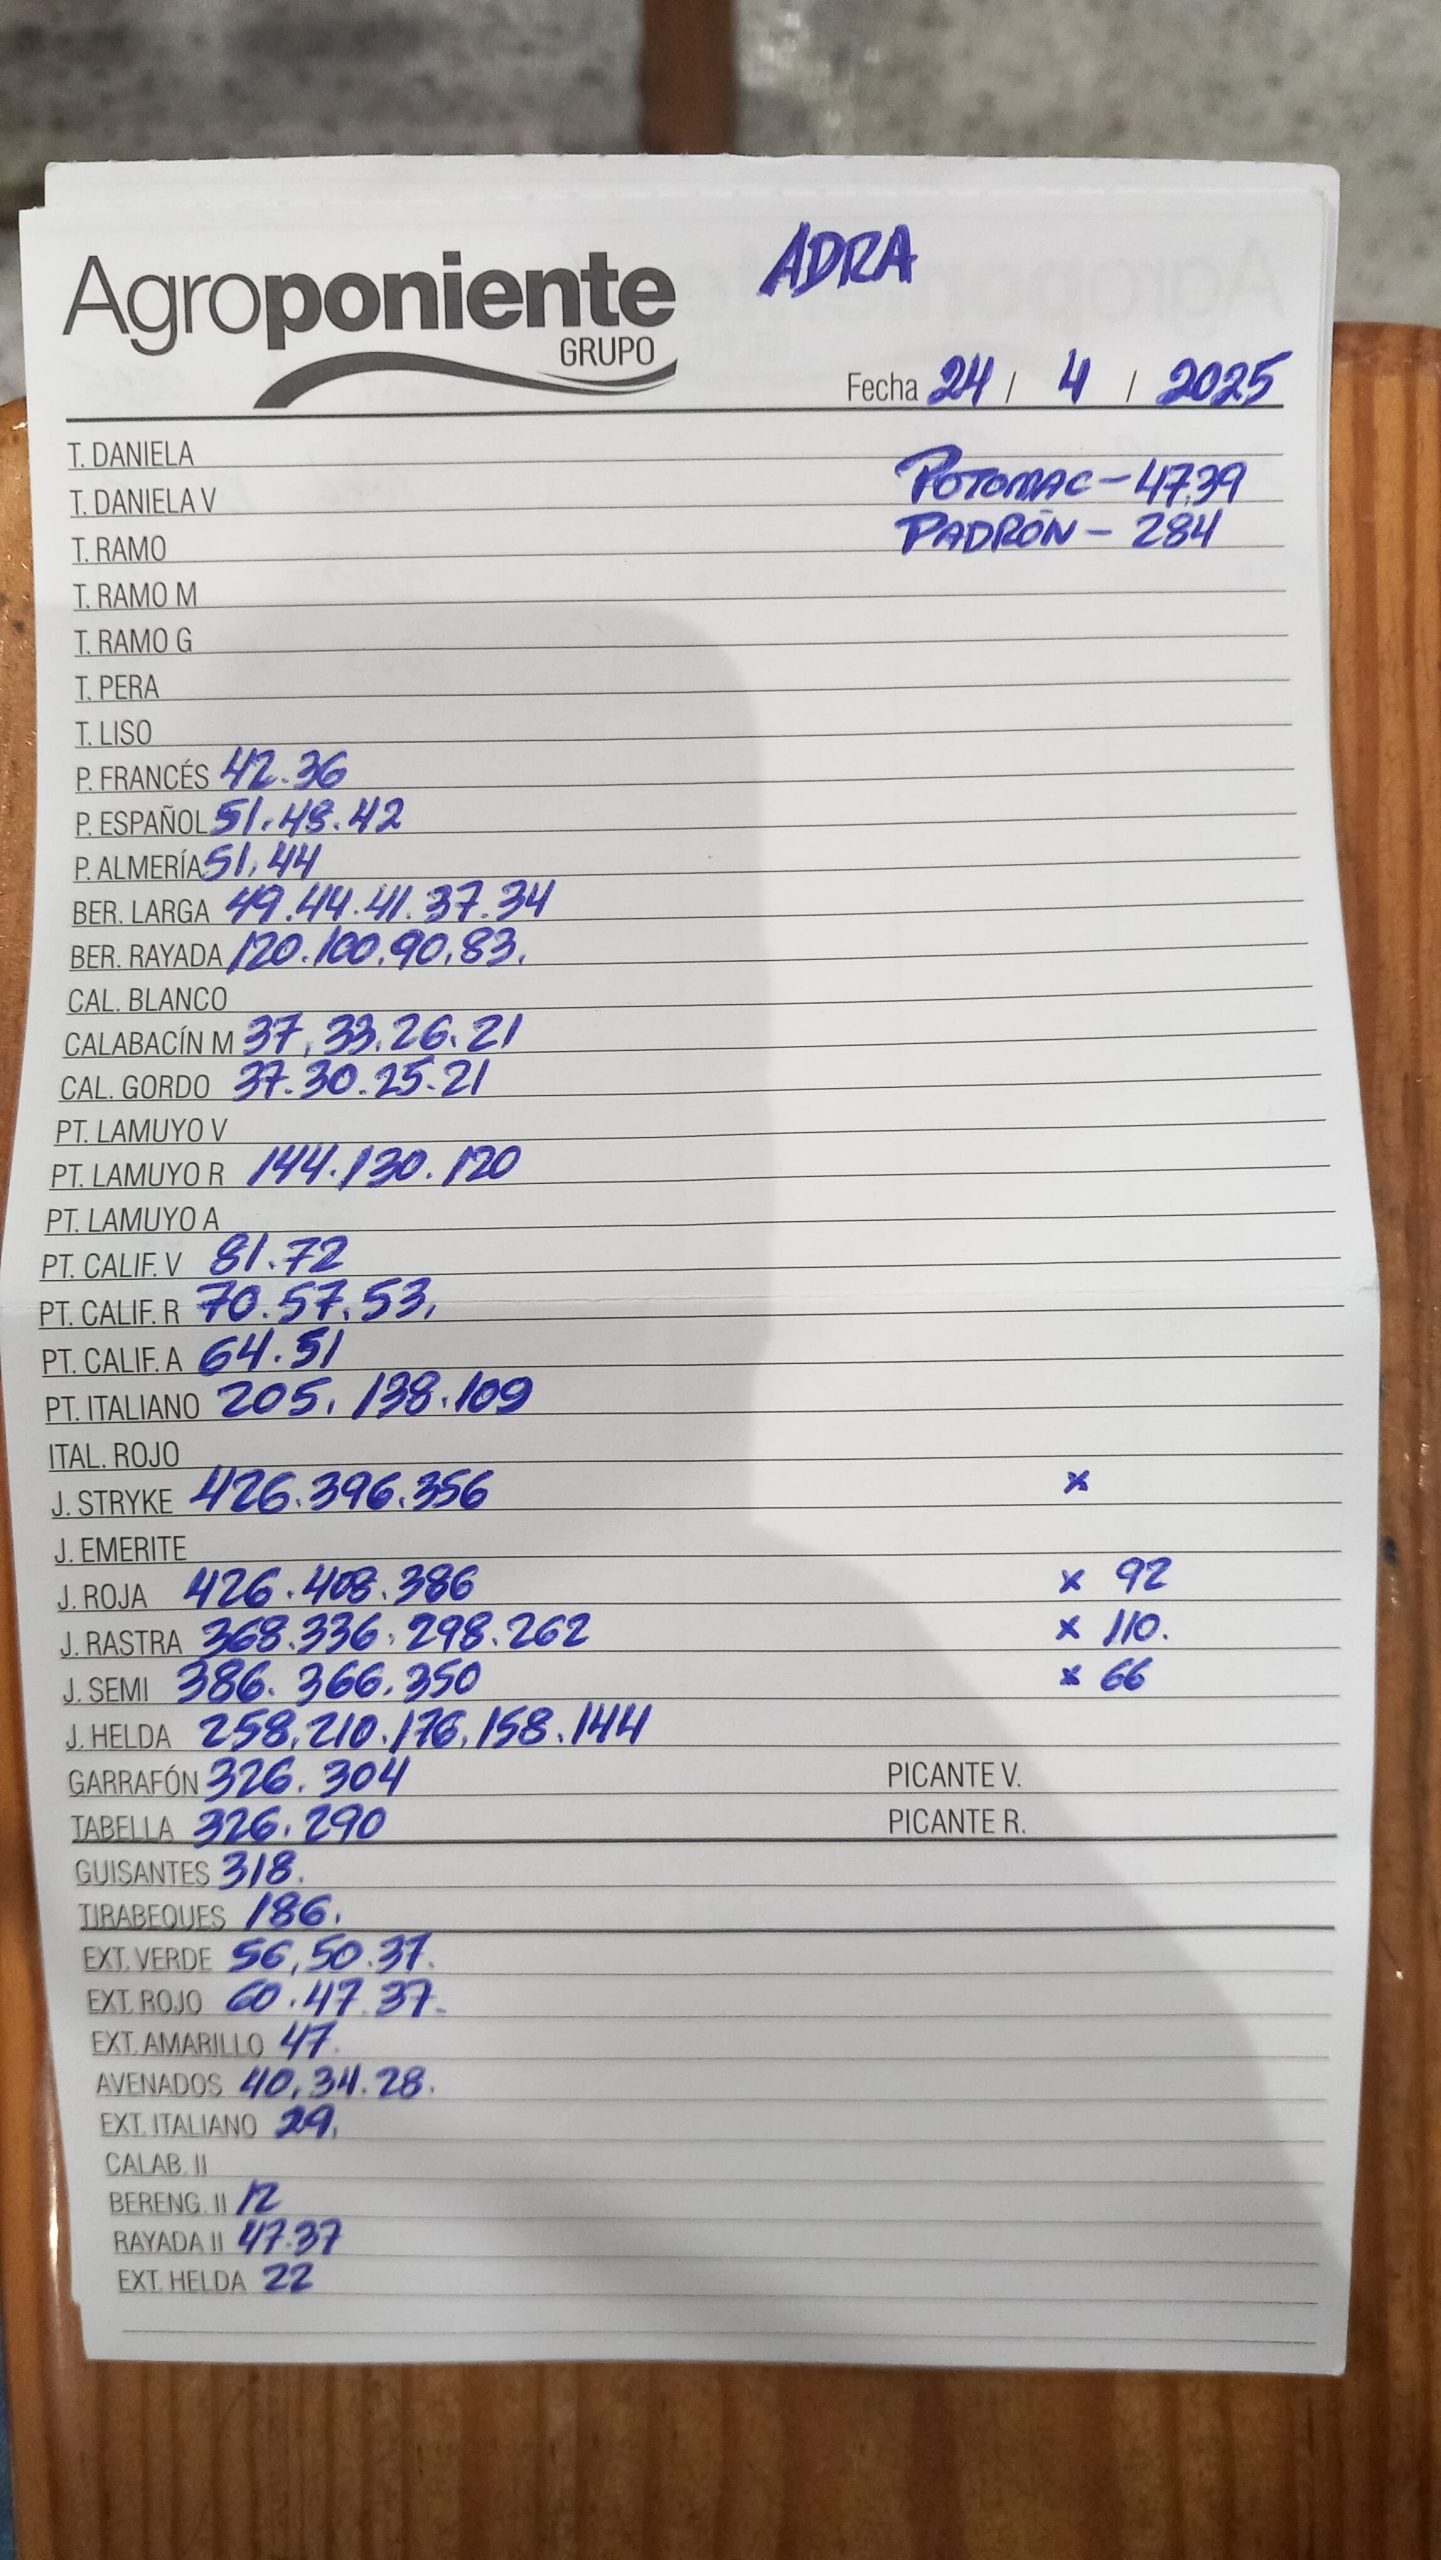 Agroponiente
GRUPO
ADRA
Fecha 24 / 4 / 2025
T. DANIELA
POTOMAC - 47.39
T. DANIELA V
PADRÓN - 284
T. RAMO
T. RAMO M
T. RAMO G
T. PERA
T. LISO
P. FRANCÉS 42.36
P. ESPAÑOL 51.48.42
P. ALMERÍA 51.44
BER. LARGA 49.44.41.37.34
BER. RAYADA 120.100.90.83.
CAL. BLANCO
CALABACÍN M 37,33.26.21
CAL. GORDO 37.30.25.21
PT. LAMUYO V
PT. LAMUYO R 144.130.120
PT. LAMUYO A
PT. CALIF. V 81.72
PT. CALIF. R 70.57.53,
PT. CALIF. A 64.51
PT. ITALIANO 205.138.109
ITAL. ROJO
J. STRYKE 426.396.356 x
J. EMERITE
J. ROJA 426.408.386 x 92
J. RASTRA 368.336.298.262 x 110.
J. SEMI 386.366.350 x 66
J. HELDA 258,210.176,158.144
GARRAFÓN 326.304 PICANTE V.
TABELLA 326.290 PICANTE R.
GUISANTES 318.
TIRABEQUES 186.
EXT. VERDE 56,50.37.
EXT. ROJO 60.47.37.
EXT. AMARILLO 47.
AVENADOS 40,34.28.
EXT. ITALIANO 29,
CALAB. II
BERENG. II 12
RAYADA II 47.37
EXT. HELDA 22